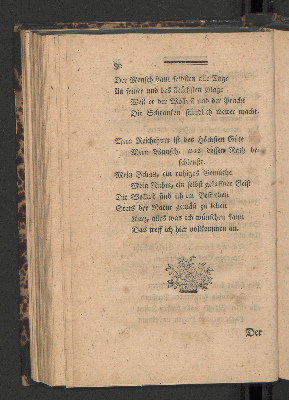 30
Der Mensch baut selbsten alle Tage
An seiner und des Nächsten Plage
Weil er der Wollust und der Pracht
Die Schranken stündlich weiter macht.
Mein Reichthum ist des Höchsten Güte
Mein Wunsch, was dessen Rath be-
schleußt.
Mein Schatz, ein ruhiges Gemüthe
Mein Ruhm, ein selbst gelaßner Geist
Die Wollust sind ich im Bestreben
Stets der Natur gemäß zu leben
Kurz, alles was ich wünschen kann
Das treff ich hier vollkommen an.
Der